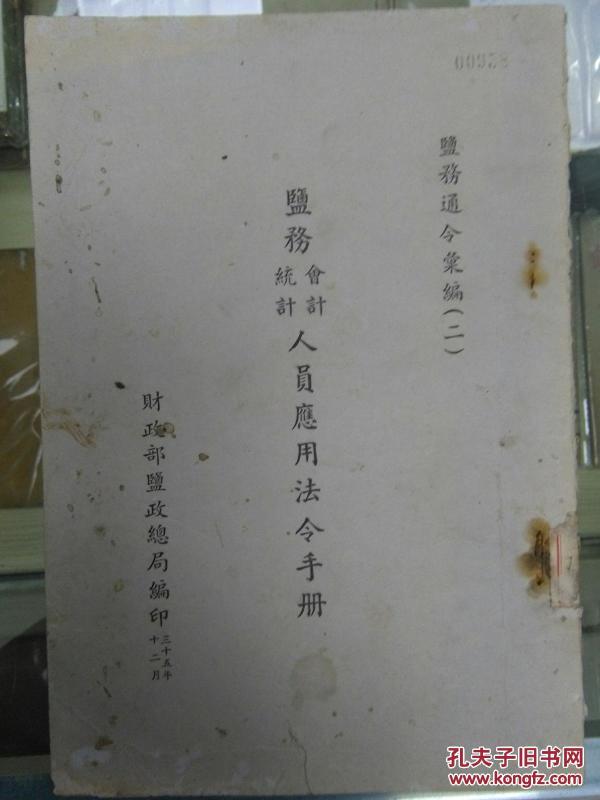 00938
鹽務通令彙編(二)
鹽務會計統計人員應用法令手册
財政部鹽政總局編印
三十五年
十二月
孔夫子旧书网
www.kongfz.com